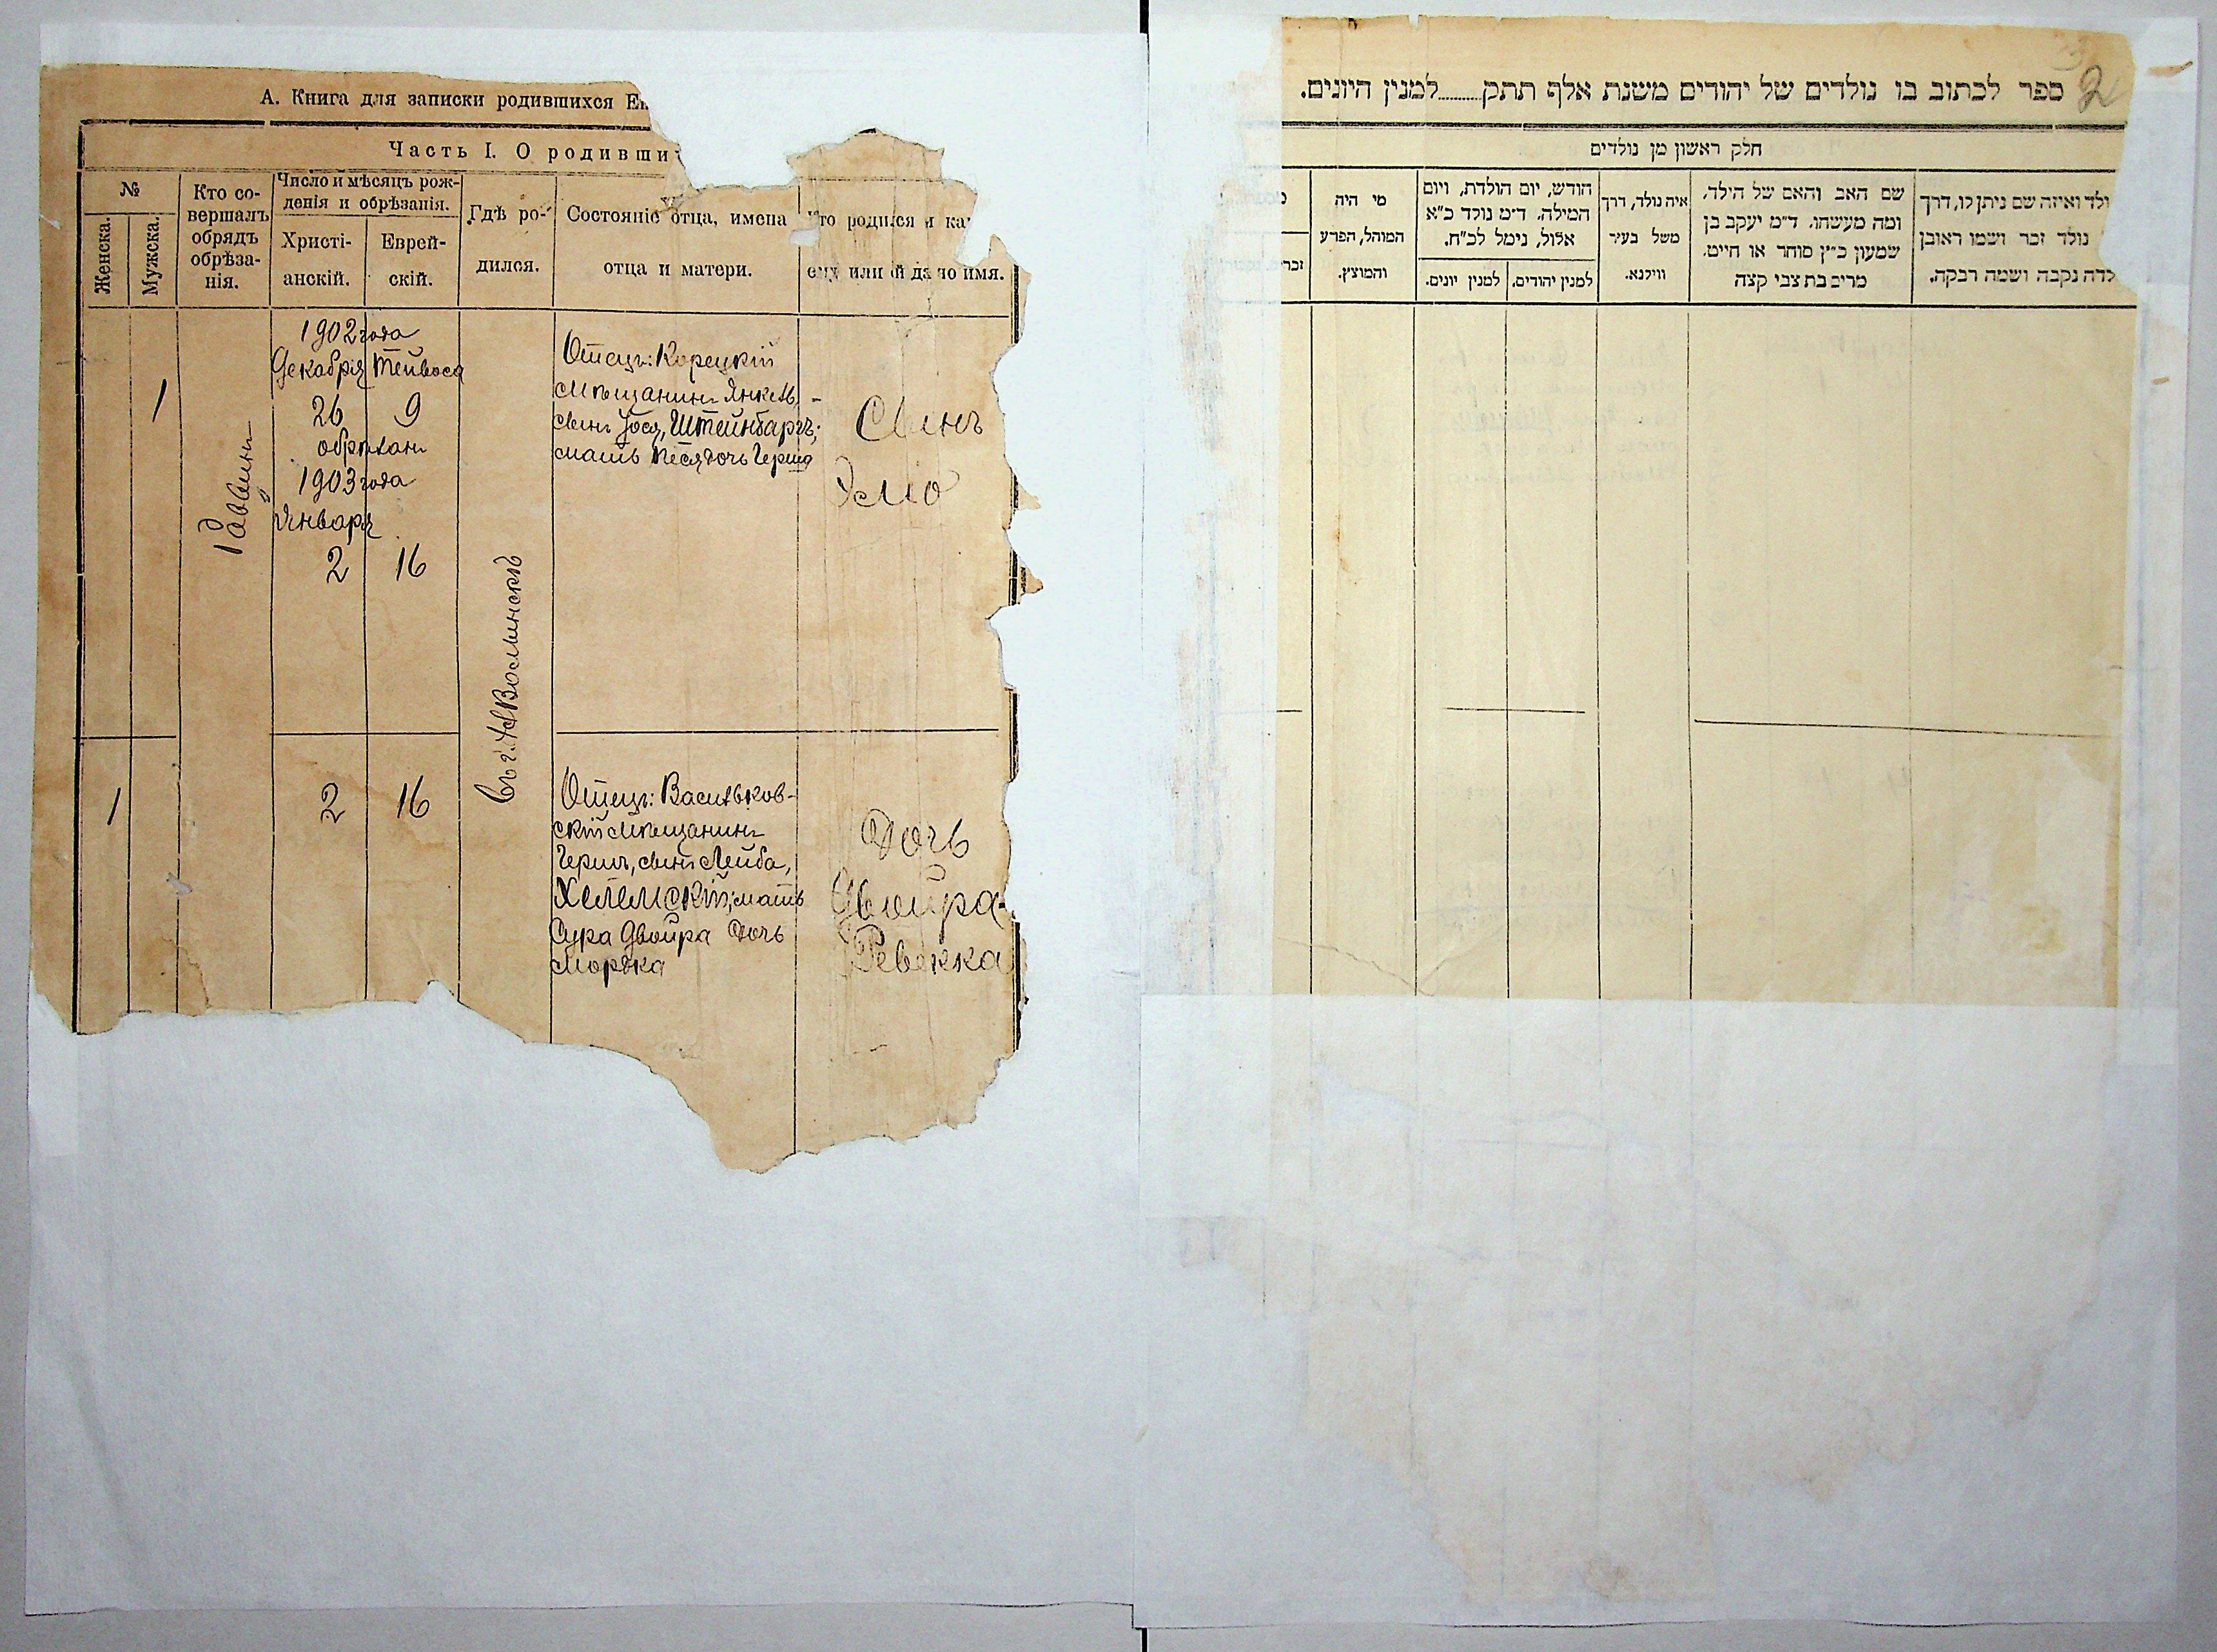 А. Книга для записки родившихся Ев
Часть I. О родивши
№
Женска.
Мужска.
Кто со-
вершалъ
обрядъ
обрѣза-
нія.
Число и мѣсяцъ рож-
денія и обрѣзанія.
Христі-
анскій.
Еврей-
скій.
Гдѣ ро-
дился.
Состояніе отца, имена
отца и матери.
Кто родился и ка
ему или ей дано имя.
1
Раввинъ
1902 года
Декабря Тейвоса
26 9
обрѣзанъ
1903 года
Январь
2 16
Въ г. Н Волынскѣ
Отецъ: Корецкій
мѣщанинъ Янкель,
сынъ Йося, Штейнбаргъ;
мать Песя дочь Герша
Сынъ
Эліо
1
2 16
Отецъ: Васильков-
скій мѣщанинъ
Гершъ, сынъ Лейба,
Хелемскій; мать
Сура Двойра дочь
Мордка
Дочь
Двойра-
Ревекка
2
ספר לכתוב בו נולדים של יהודים משנת אלף תתק.........למנין היונים.
חלק ראשון מן נולדים
ילד ואיזה שם ניתן לו, דרך
נולד זכר ושמו ראובן
לדה נקבה ושמה רבקה.
שם האב והאם של הילד,
ומה מעשהו. ד״מ יעקב בן
שמעון כ״ץ סוחר או חייט,
מרים בת צבי קצה
איה נולד, דרך
משל בעיר
ווילנא.
חודש, יום הולדת, ויום
המילה. ד״מ נולד כ״א
אלול, נימל לכ״ח.
למנין יהודים.
למנין יונים.
מי היה
המוהל, הפרע
והמוצץ.
זכר